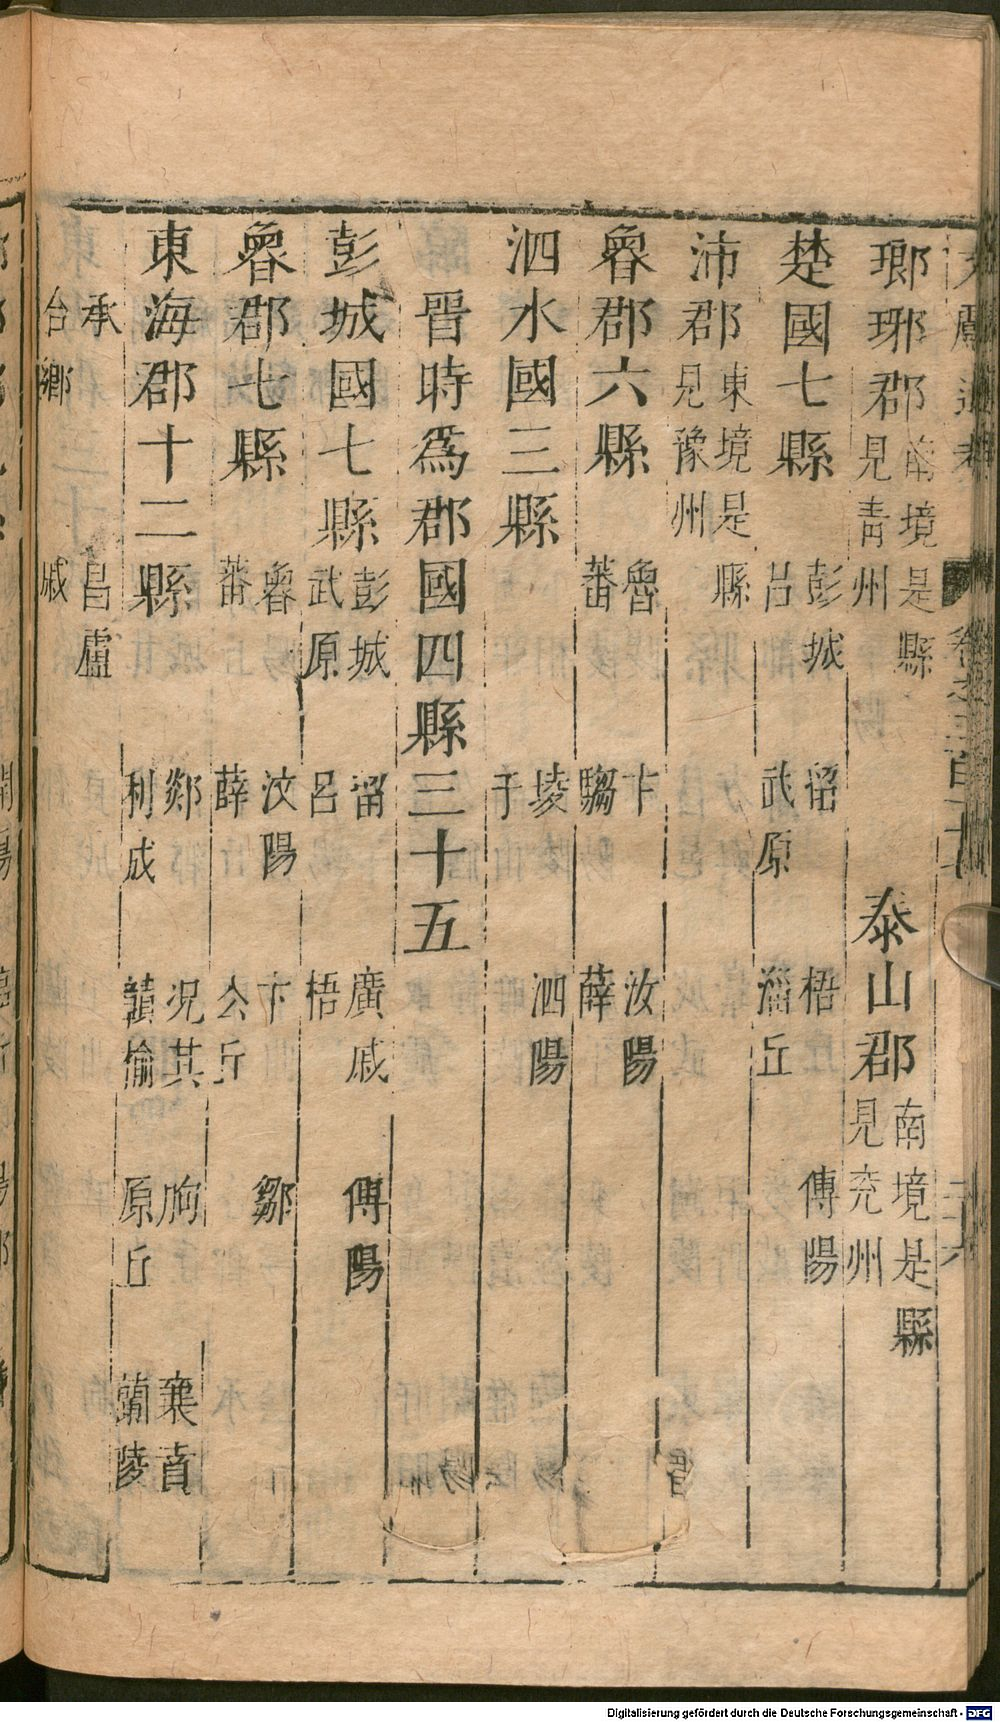 瑯琊郡南境是縣見青州 泰山郡南境是縣見兖州
楚國七縣 彭城 留 梧 傅陽 呂 武原 甾丘
沛郡東境是縣見豫州
魯郡六縣 魯 卞 汝陽 蕃 騶 薛
泗水國三縣 㖼 泗陽 于
晉時爲郡國四縣三十五
彭城國七縣 彭城 留 廣戚 傅陽 武原 呂 梧
魯郡七縣 魯 汶陽 卞 鄒 蕃 薛 公丘
東海郡十二縣 郯 况其 朐 襄賁 利成 贛榆 原丘 蘭陵
承 昌慮
台鄉 戚
Digitalisierung gefördert durch die Deutsche Forschungsgemeinschaft - DFG